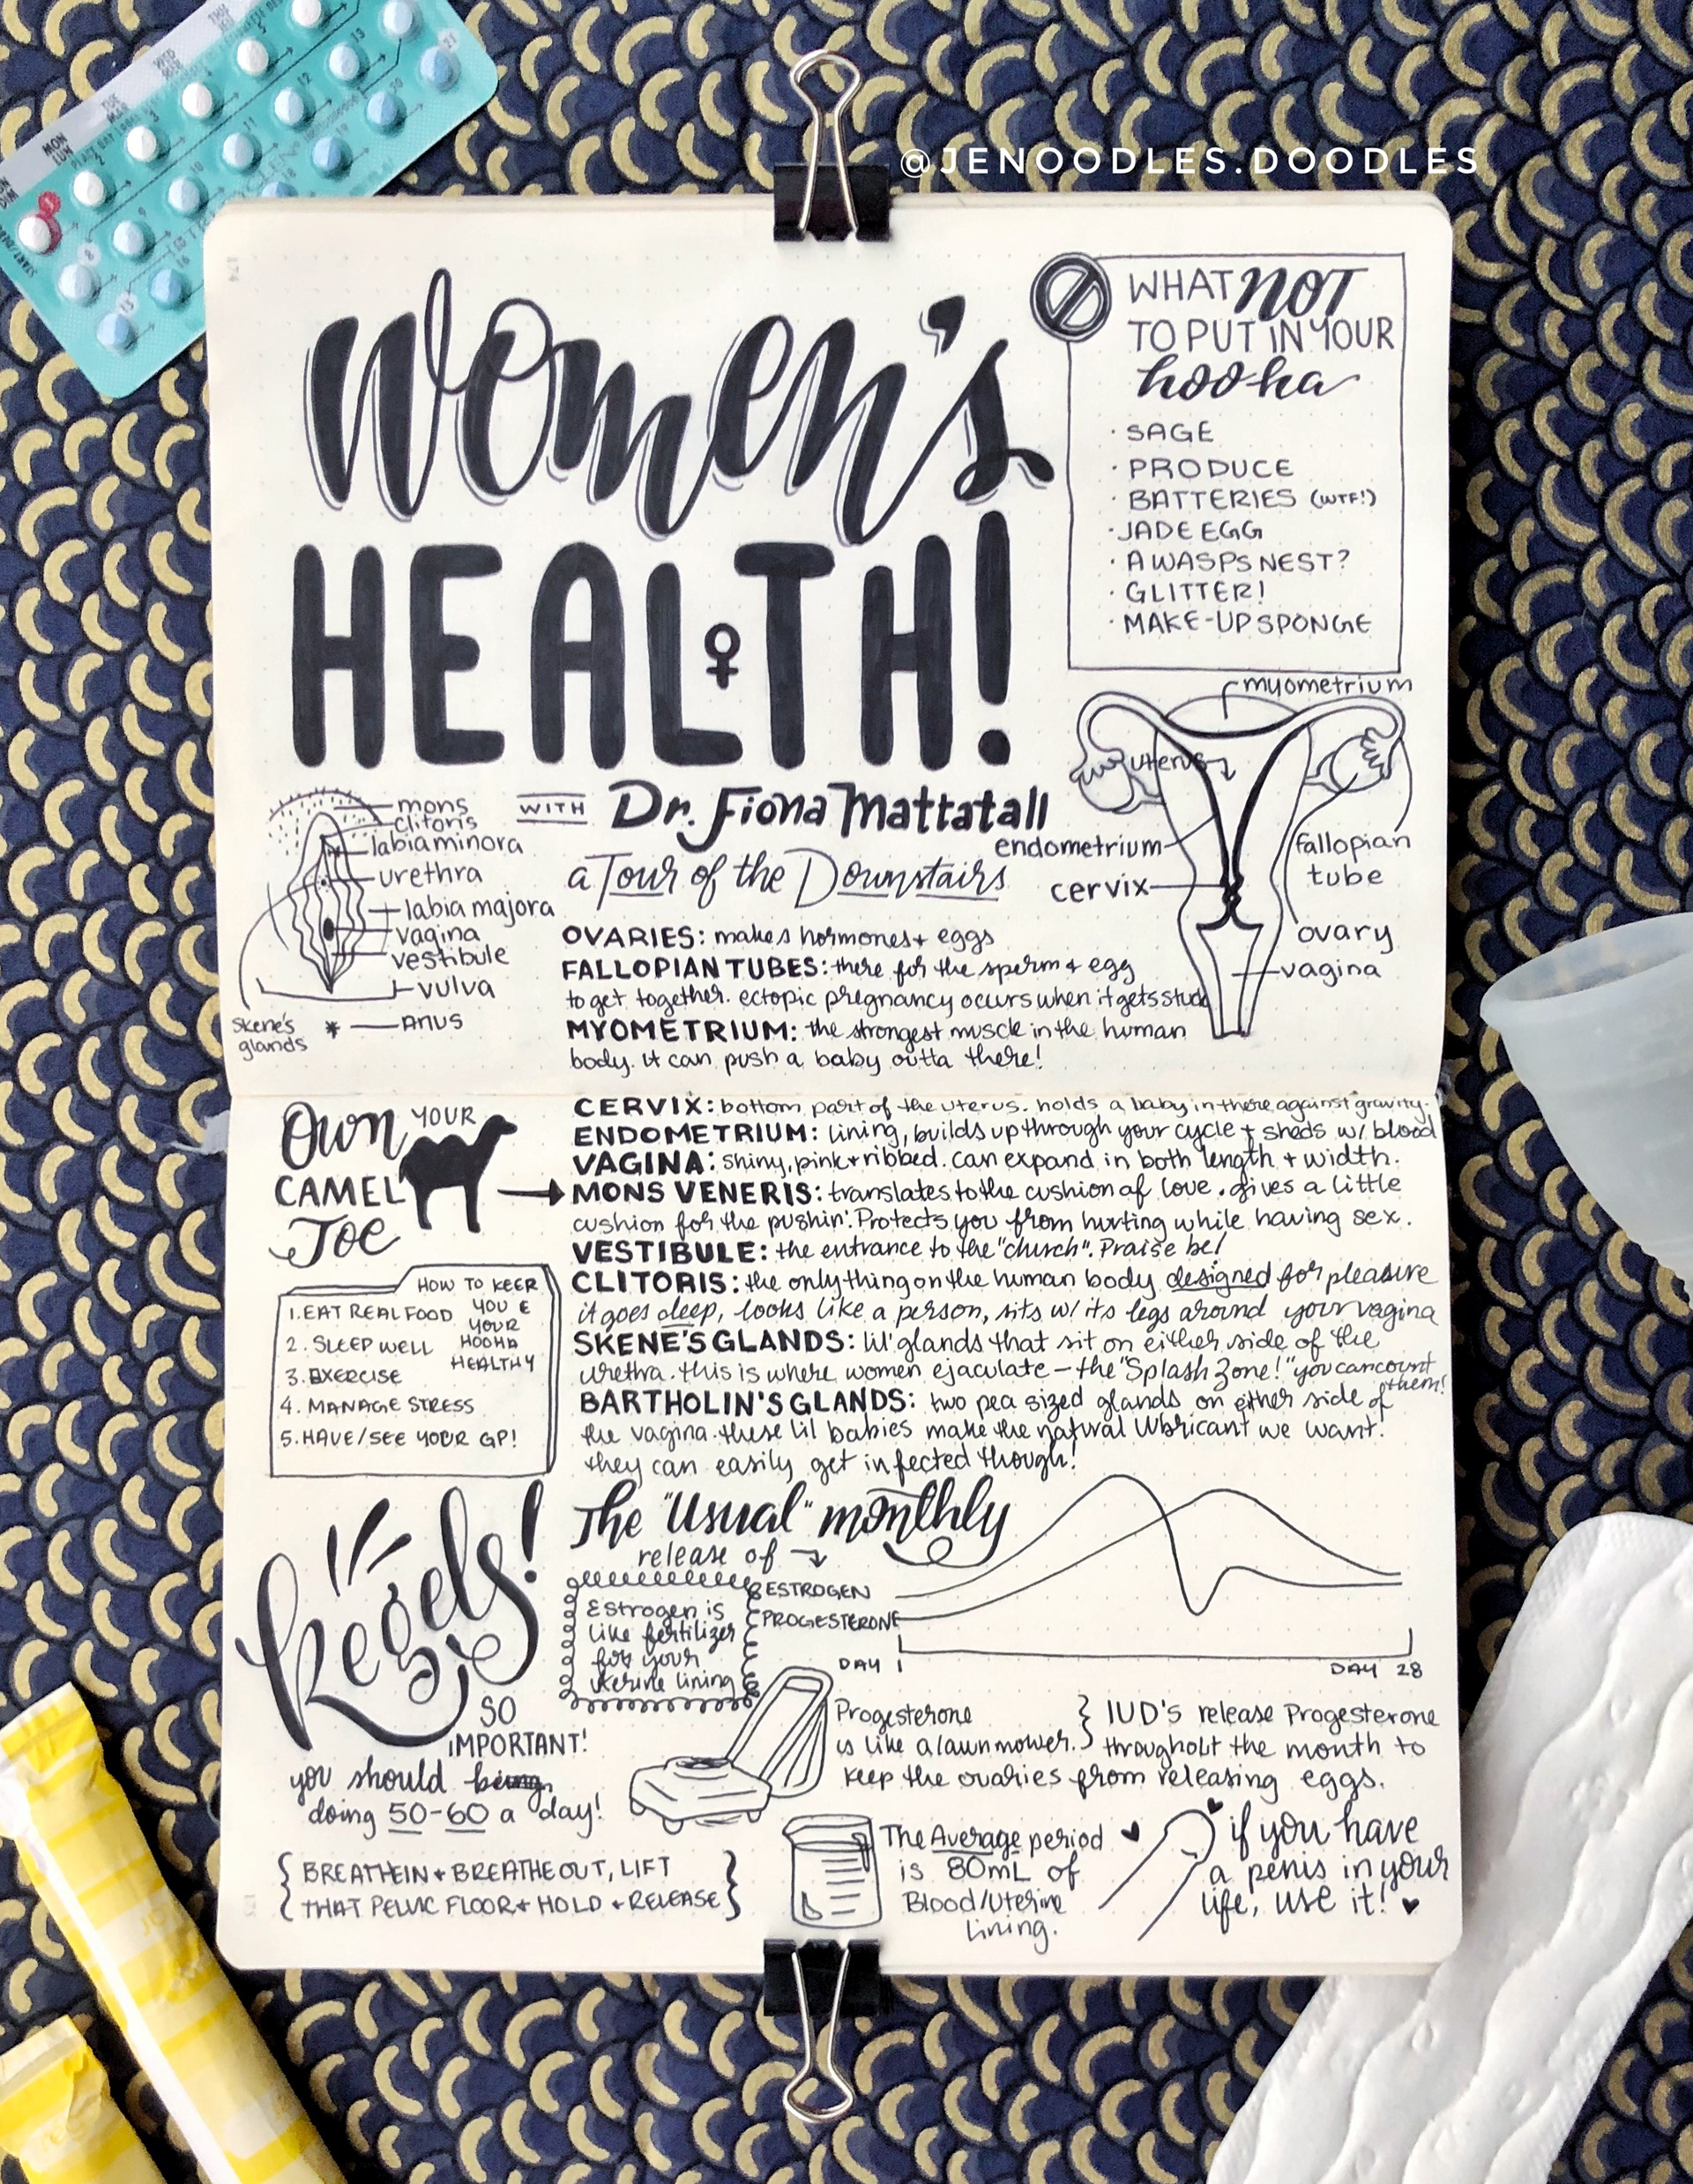 @JENOODLES.DOODLES
MON
LUN
174
Women's
HEALTH!
WITH Dr. Fiona Mattatall
a Tour of the Downstairs
WHAT NOT
TO PUT IN YOUR
hoo-ha
· SAGE
· PRODUCE
· BATTERIES (WTF!)
· JADE EGG
· A WASPS NEST?
· GLITTER!
· MAKE-UP SPONGE
mons
clitoris
labia minora
urethra
labia majora
vagina
vestibule
vulva
Skene's
glands
ANUS
myometrium
uterus
endometrium
cervix
fallopian
tube
ovary
vagina
OVARIES: makes hormones + eggs
FALLOPIAN TUBES: there for the sperm + egg
to get together. ectopic pregnancy occurs when it gets stuck
MYOMETRIUM: the strongest muscle in the human
body. it can push a baby outta there!
CERVIX: bottom part of the uterus. holds a baby in there against gravity.
ENDOMETRIUM: lining, builds up through your cycle + sheds w/ blood
VAGINA: shiny, pink + ribbed. can expand in both length + width.
MONS VENERIS: translates to the cushion of love. gives a little
cushion for the pushin'. Protects you from hurting while having sex.
VESTIBULE: the entrance to the "church". Praise be!
CLITORIS: the only thing on the human body designed for pleasure
it goes deep, looks like a person, sits w/ its legs around your vagina
SKENE'S GLANDS: lil' glands that sit on either side of the
urethra. this is where women ejaculate – the "Splash Zone!" you can count
them!
BARTHOLIN'S GLANDS: two pea sized glands on either side of
the vagina. these lil babies make the natural lubricant we want.
they can easily get infected though!
Own YOUR
CAMEL
Toe
HOW TO KEEP
YOU &
YOUR
HOOHA
HEALTHY
1. EAT REAL FOOD
2. SLEEP WELL
3. EXERCISE
4. MANAGE STRESS
5. HAVE/SEE YOUR GP!
Kegels!
SO
IMPORTANT!
you should
doing 50-60 a day!
{ BREATHE IN + BREATHE OUT, LIFT
THAT PELVIC FLOOR + HOLD + RELEASE }
The "Usual" monthly
release of
ESTROGEN
PROGESTERONE
DAY 1
DAY 28
Estrogen is
like fertilizer
for your
uterine lining
Progesterone
is like a lawnmower.
} IUD's release Progesterone
throughout the month to
keep the ovaries from releasing eggs.
The Average period
is 80mL of
Blood/Uterine
lining.
if you have
a penis in your
life, use it!